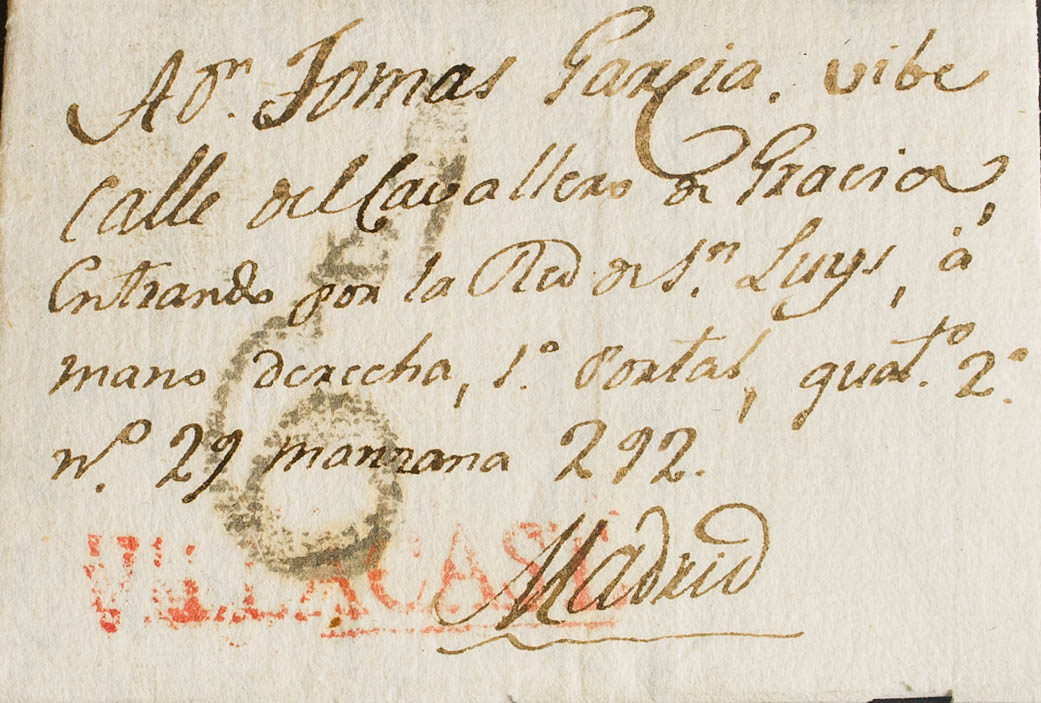 A Dn. Tomas Garcia. vibe
Calle del Cavallero de Gracia,
Entrando por la Red de Sn. Luys, à
mano derecha, 1.º portal, quart.º 2º.
N.º 29 manzana 292.
Madrid
6